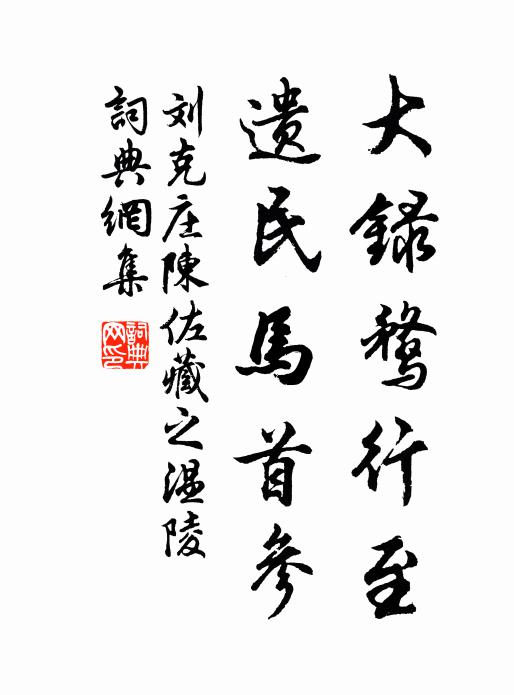 大錄鶩行至
遺民馬首參
刘克庄陳佐藏之温陵
詞典網集
詞典
网印